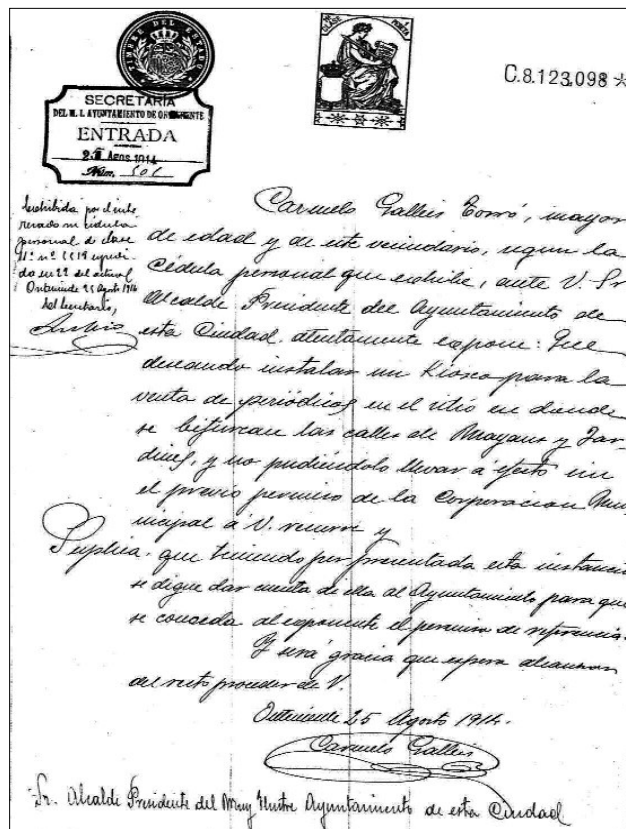 TIMBRE DEL ESTADO
C.8.123,098 *
SECRETARÍA
DEL M. I. AYUNTAMIENTO DE ONTENIENTE
ENTRADA
25 Agos. 1914
Núm. 501
Exhibida por el inte
resado su cédula
personal de clase
11ª nº expedi
da en 22 del actual
Onteniente 25 Agosto 1914
El Secretario,
Carmelo Galbis Torró, mayor
de edad y de este vecindario, segun la
Cédula personal que exhibe, ante V. Sr
Alcalde Presidente del Ayuntamiento de
esta Ciudad atentamente expone: Que
deseando instalar un Kiosco para la
venta de periódicos en el sitio en donde
se bifurcan las calles de Mayans y Jar-
dines, y no pudiéndolo llevar á efecto sin
el previo permiso de la Corporacion Mu-
nicipal á V. recurre y
Suplica, que teniendo por presentada esta instancia
se digne dar cuenta de ella al Ayuntamiento para que
se conceda al exponente el permiso de referencia.
Y será gracia que espera alcanzar
del recto proceder de V.
Onteniente 25 Agosto 1914.
Carmelo Galbis
Sr. Alcalde Presidente del Muy Ilustre Ayuntamiento de esta Ciudad